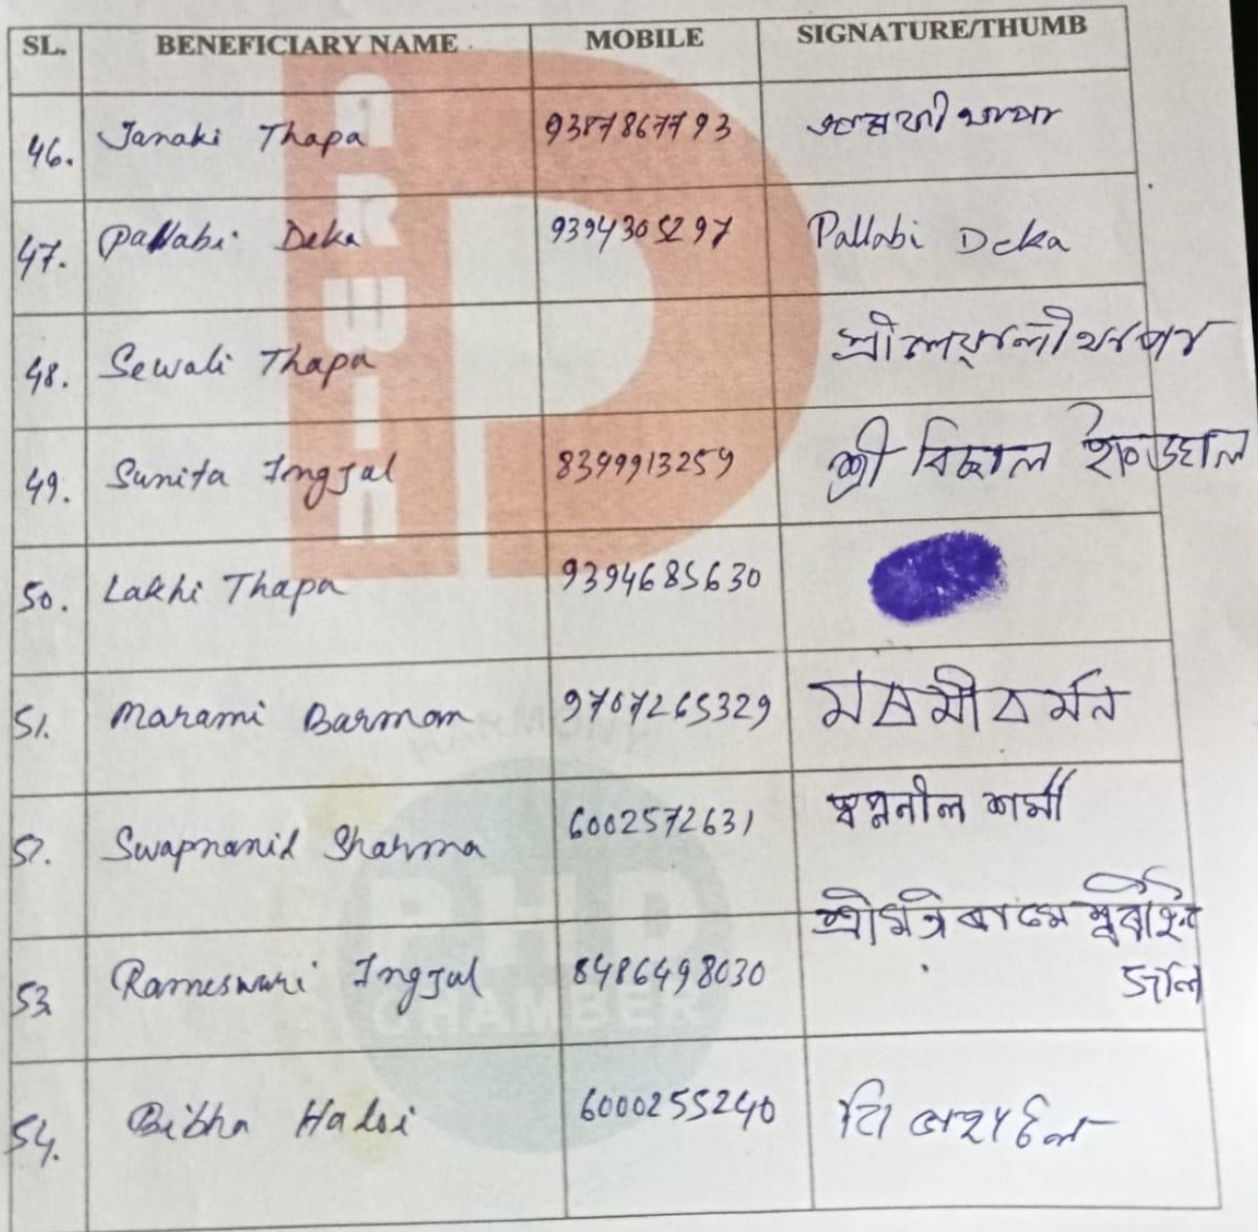 SL. BENEFICIARY NAME MOBILE SIGNATURE/THUMB
46. Janaki Thapa 9387867793
47. Pallabi Deka 9394305297 Pallabi Deka
48. Sewali Thapa
49. Sunita Ingjal 8399913259 শ্রী
50. Lakhi Thapa 9394685630
51. Marami Barman 9707265329 মৰমী বৰ্মন
52. Swapnanil Sharma 6002572631 স্বপ্ননীল শৰ্মা
53 Rameswari Ingjal 8486498030
54. Bibha 6000255240
ARWIN
HARMONY
PHD
CHAMBER